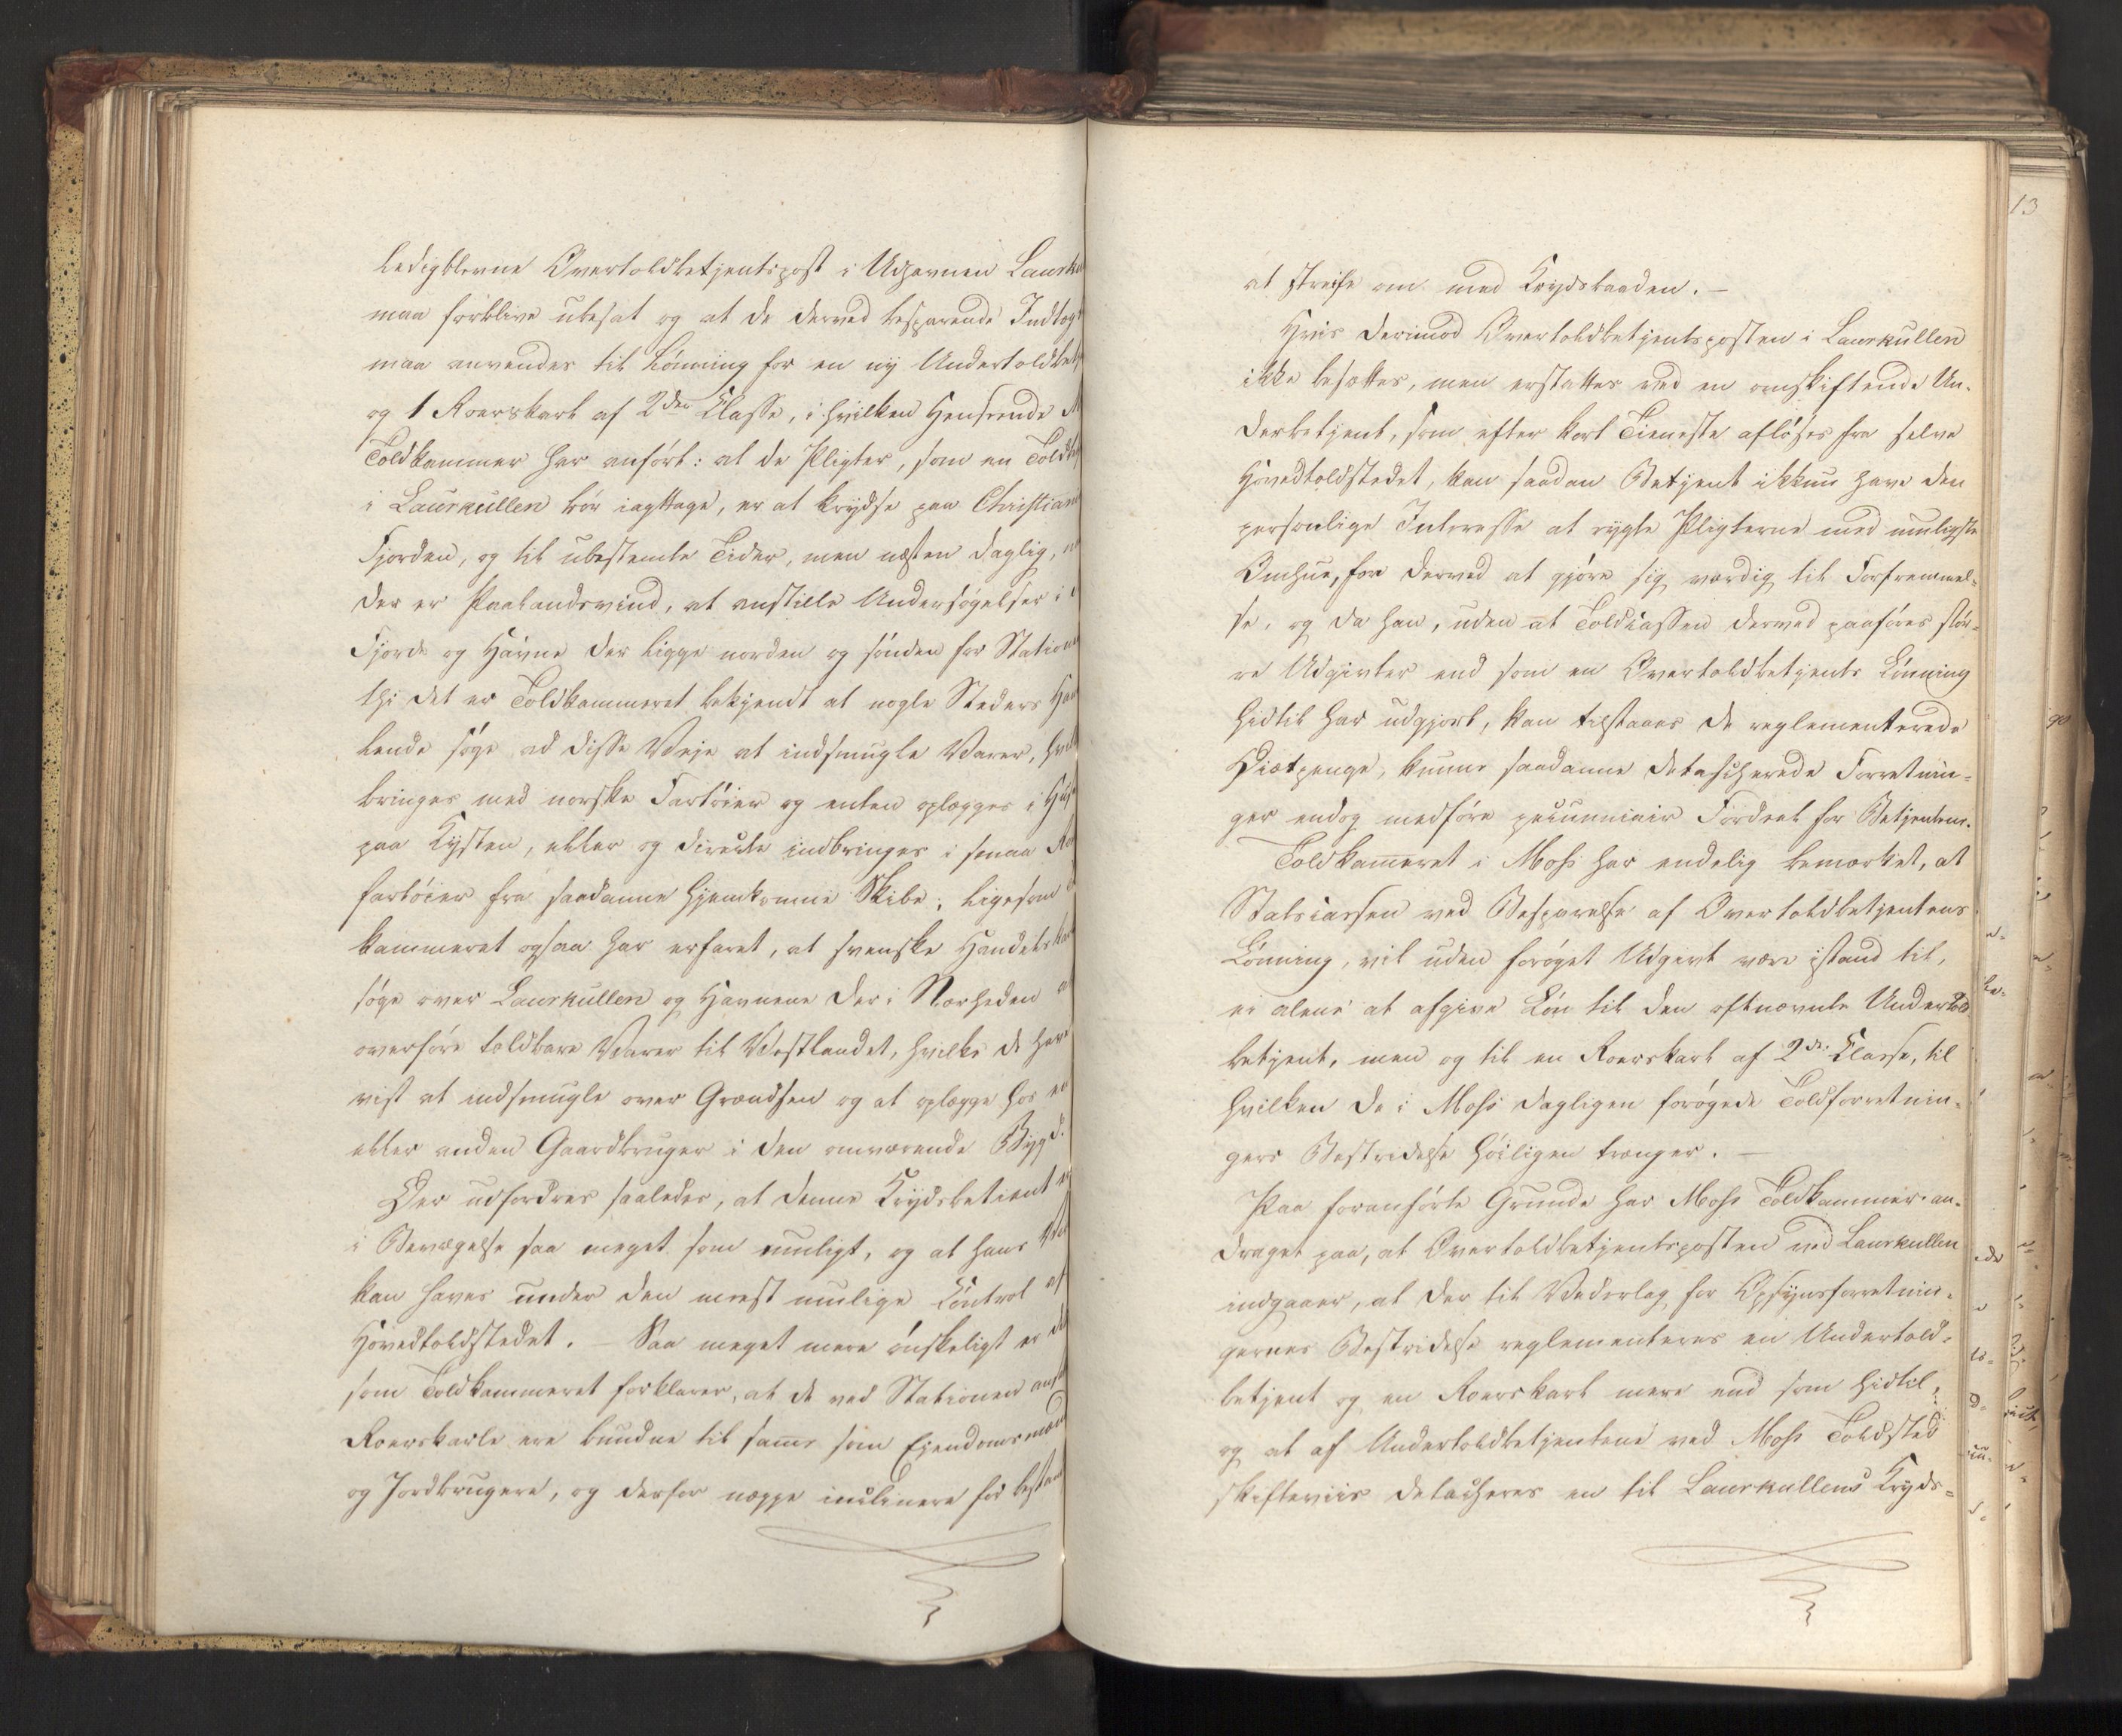 ledigblevne Overtoldbetjentspost i Udhavnen Laurku
maa forblive ubesat og at de derved besparende Indtægt
maa anvendes til Lønning for en ny Undertoldbetj
og 1 Roerskarl af 2den Classe, i hvilken Henseende M
Toldkammer har anført: at de Pligter, som en Toldbetj
i Laurkullen bör iagttage, er at krydse paa Christiani
Fjorden, og til ubestemte Tider, men næsten daglig, n
der er Paalandsvind, at anstille Undersøgelser i
Fjorde og Havne der ligge norden og sönden for Station
thi det er Toldkammeret bekjendt at nogle Steders Han
lende søge ad disse Veje at indsmugle Varer, hvil
bringes med norske Fartøier og enten oplægges i Huse
paa Kysten, eller og directe indbringes i smaa Ro
fartöier fra saadanne hjemkomne Skibe; ligesom
kammeret ogsaa har erfaret, at svenske Handelskar
søge over Laurkullen og Havnene der i Nærheden a
overføre toldbare Varer til Vestlandet, hvilke de have
vist at indsmugle over Grændsen og at oplægge hos en
eller anden Gaardbruger i den omværende Bygd.
Der udfordres saaledes, at denne Krydsbetient er
i Bevægelse saa meget som muligt, og at hans
kan haves under den meest mulige Control af
Hovedtoldstedet. – Saa meget mere ønskeligt er det
som Toldkammeret forklarer, at de ved Stationen ansat
Roerskarle ere bundne til samme som Ejendomsmænd
og Jordbrugere, og derfor neppe inclinere for bestand
13
at streife om med Krydsbaaden. –
Hvis derimod Overtoldbetjentsposten i Laurkullen
ikke besættes, men erstattes ved en omskiftende Un-
derbetjent, som efter kort Tieneste aflöses fra selve
Hovedtoldstedet, kan saadan Betjent ikkun have den
personlige Interesse at rygte Pligterne med muligste
Omhue, for derved at gjøre sig værdig til Forfremmel-
se, og da han, uden at Toldcassen derved paaføres stör-
re Udgivter end som en Overtoldbetjents Lønning
hidtil har udgjort, kan tilstaaes de reglementerede
Diætpenge, kunne saadanne detascherede Forretnin-
ger endog medføre pecunniair Fordeel for Betjenten.
Toldkammeret i Moss har endelig bemærket, at
Statscassen ved Besparelse af Overtoldbetjentens
Lønning, vil uden forøget Udgivt være istand til,
ei alene at afgive Løn til den oftnævnte Undertold
betjent, men og til en Roerskarl af 2de Classe, til
hvilken de i Moss dagligen forøgede Toldforretnin-
gers Bestridelse höiligen trænger. –
Paa foranførte Grunde har Moss Toldkammer an-
draget paa, at Overtoldbetjentsposten ved Laurkullen
indgaaer, at der til Vederlag for Opsynsforretnin-
gernes Bestridelse reglementeres en Undertold-
betjent og en Roerskarl mere end som hidtil,
og at af Undertoldbetjentene ved Moss Toldsted
skifteviis detacheres en til Laurkullens Kryds-